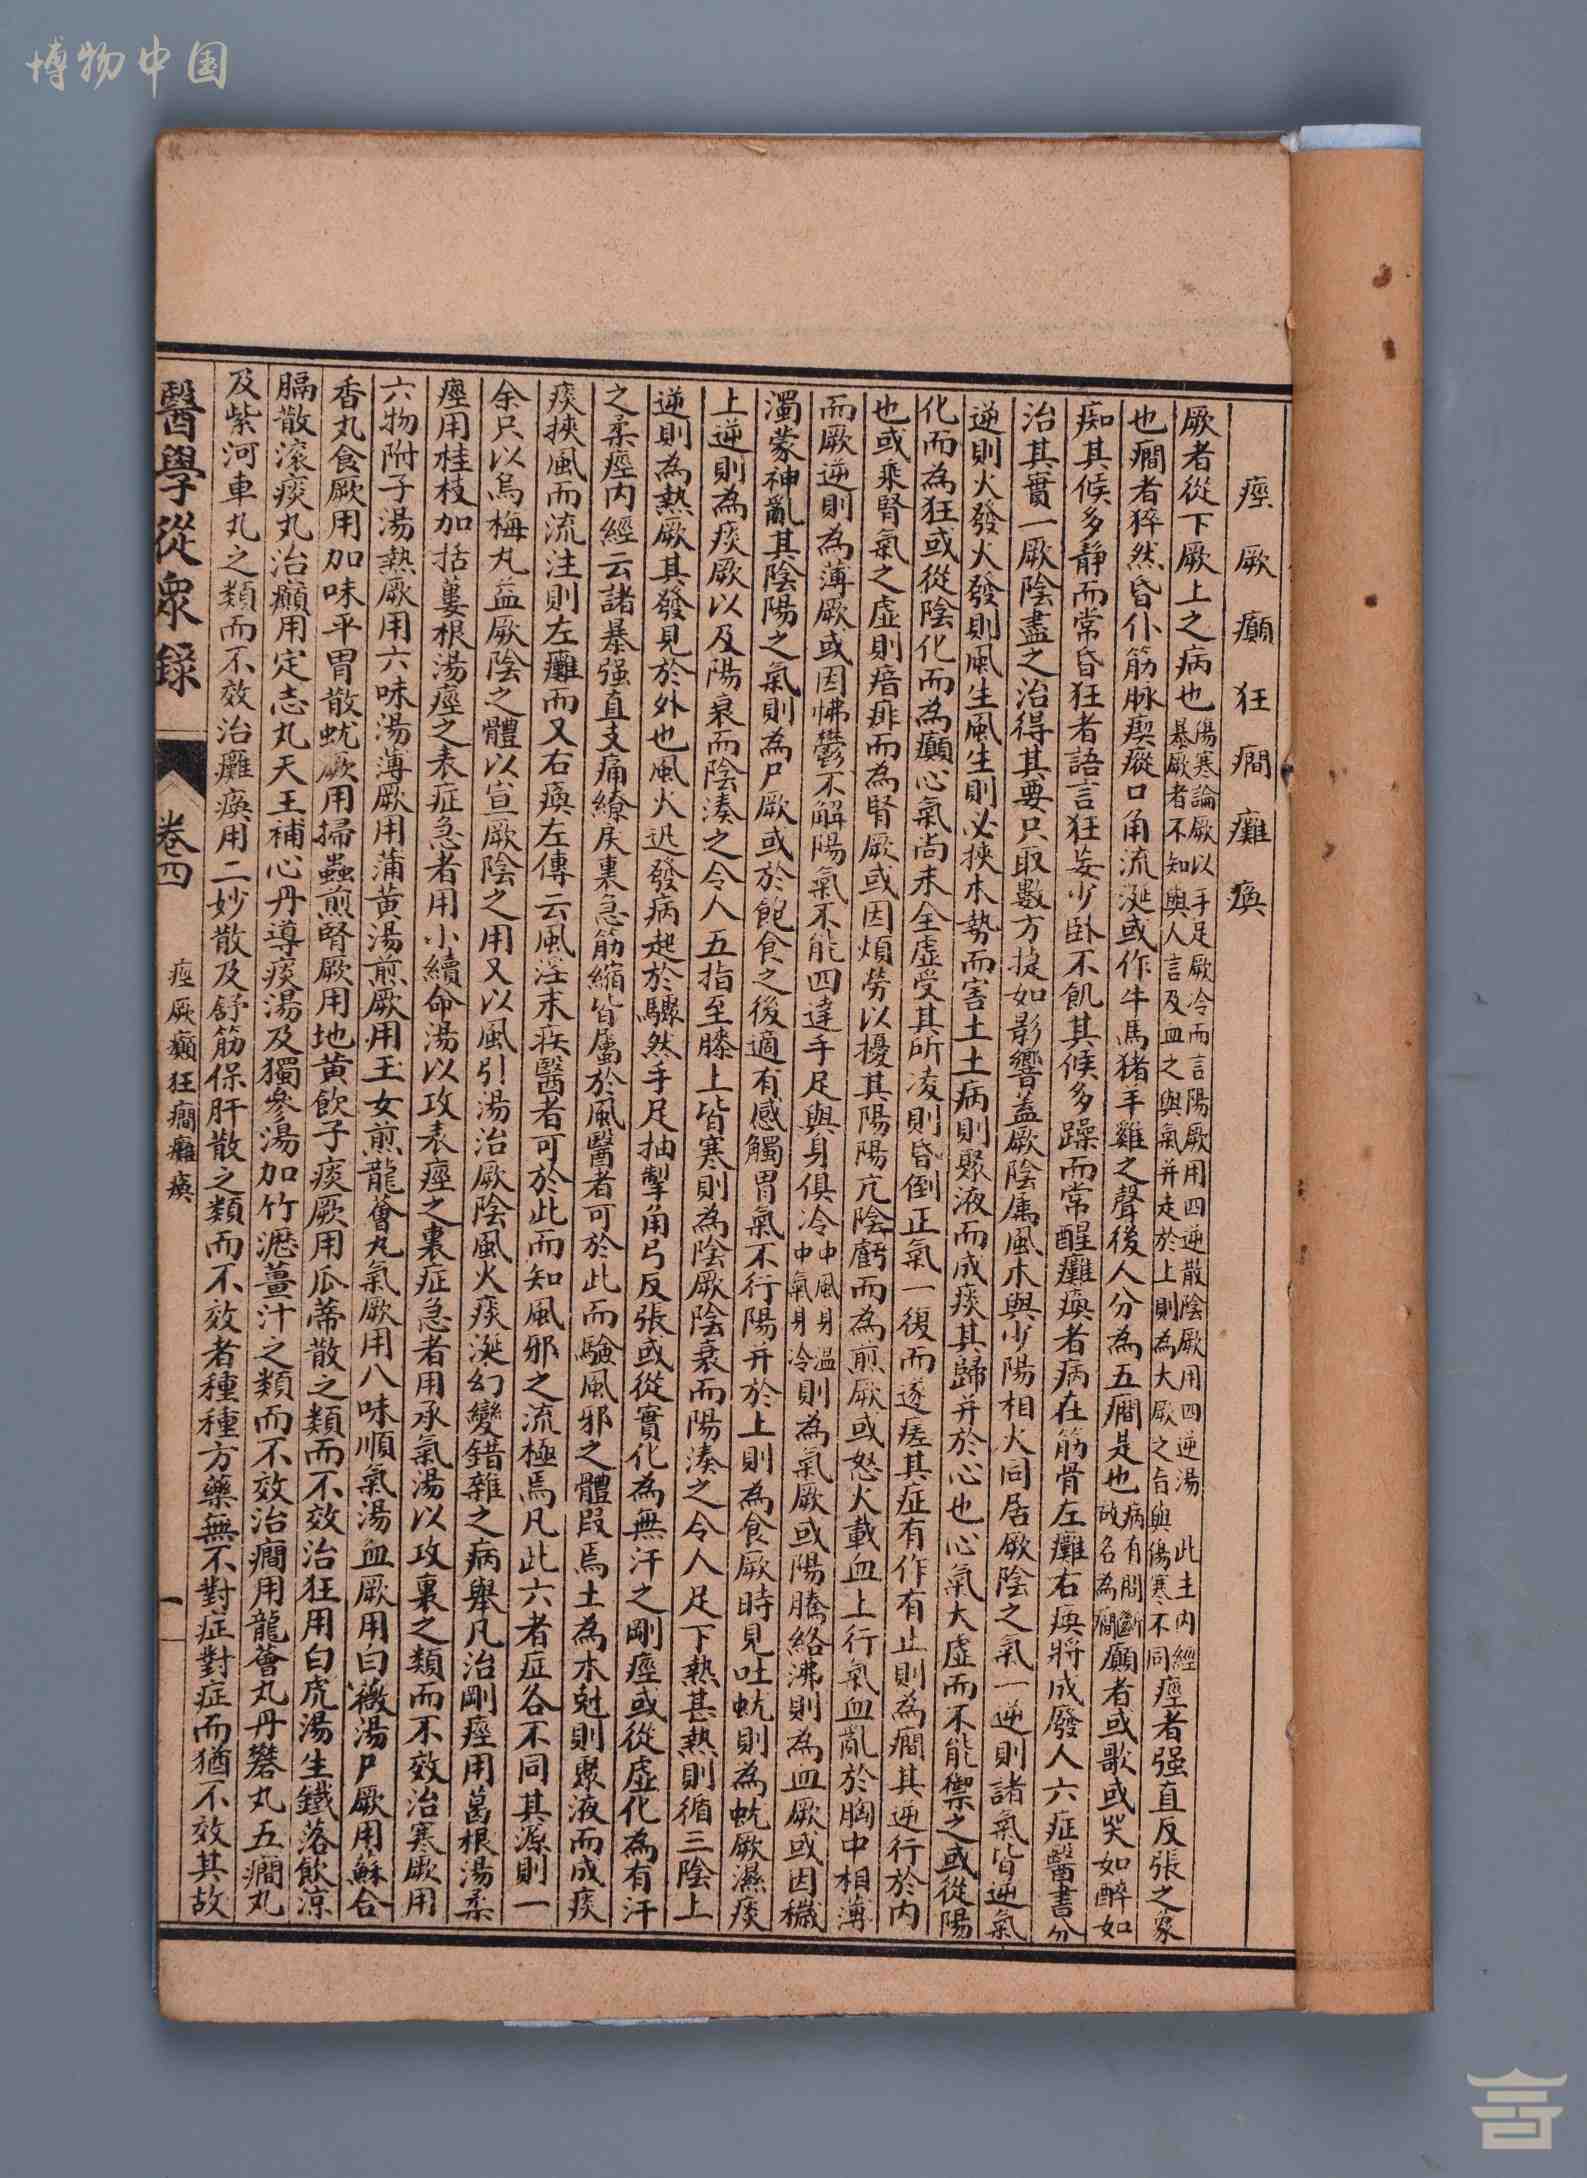 博物中国
痙厥癲狂癇癱瘓
厥者從下厥上之病也傷寒論厥以手足厥冷而言陽厥用四逆散陰厥用四逆湯此主內經暴厥者不知與人言及血之與氣并走於上則為大厥之旨與傷寒不同痙者强直反張之象
也癇者猝然昏仆筋脉瘈瘲口角流涎或作牛馬猪羊雞之聲後人分為五癇是也病有間斷故名為癇癲者或歌或哭如醉如
痴其候多靜而常昏狂者語言狂妄少卧不飢其候多躁而常醒癱瘓者病在筋骨左癱右瘓將成廢人六症醫書分
治其實一厥陰盡之治得其要只取數方捷如影響蓋厥陰属風木與少陽相火同居厥陰之氣一逆則諸氣皆逆氣
逆則火發火發則風生風生則必挾木勢而害土土病則聚液而成痰其歸并於心也心氣大虛而不能禦之或從陽
化而為狂或從陰化而為癲心氣尚未全虛受其所凌則昏倒正氣一復而遂瘥其症有作有止則為癇其逆行於内
也或乘腎氣之虛則瘖痱而為腎厥或因煩勞以擾其陽陽亢陰虧而為煎厥或怒火載血上行氣血亂於胸中相薄
而厥逆則為薄厥或因怫鬱不解陽氣不能四達手足與身俱冷中風身温中氣身冷則為氣厥或陽騰絡沸則為血厥或因穢
濁蒙神亂其陰陽之氣則為尸厥或於飽食之後適有感觸胃氣不行陽并於上則為食厥時見吐蚘則為蚘厥濕痰
上逆則為痰厥以及陽衰而陰湊之令人五指至膝上皆寒則為陰厥陰衰而陽湊之令人足下熱甚熱則循三陰上
逆則為熱厥其發見於外也風火迅發病起於驟然手足抽掣角弓反張或從實化為無汗之剛痙或從虛化為有汗
之柔痙内經云諸暴强直支痛繚戾裏急筋縮皆屬於風醫者可於此而驗風邪之體叚焉土為木尅則聚液而成痰
痰挾風而流注則左癱而又右瘓左傳云風淫末疾醫者可於此而知風邪之流極焉凡此六者症各不同其源則一
余只以烏梅丸益厥陰之體以宣厥陰之用又以風引湯治厥陰風火痰涎幻變錯雜之病舉凡治剛痙用葛根湯柔
痙用桂枝加括蔞根湯痙之表症急者用小續命湯以攻表痙之裏症急者用承氣湯以攻裏之類而不效治寒厥用
六物附子湯熱厥用六味湯薄厥用蒲黃湯煎厥用玉女煎龍薈丸氣厥用八味順氣湯血厥用白薇湯尸厥用蘇合
香丸食厥用加味平胃散蚘厥用掃蟲煎腎厥用地黃飲子痰厥用瓜蒂散之類而不效治狂用白虎湯生鐵落飲凉
膈散滚痰丸治癲用定志丸天王補心丹導痰湯及獨參湯加竹瀝薑汁之類而不效治癇用龍薈丸丹礬丸五癇丸
及紫河車丸之類而不效治癱瘓用二妙散及舒筋保肝散之類而不效者種種方藥無不對症對症而猶不效其故
醫學從衆錄
卷四
痙厥癲狂癇癱瘓
一